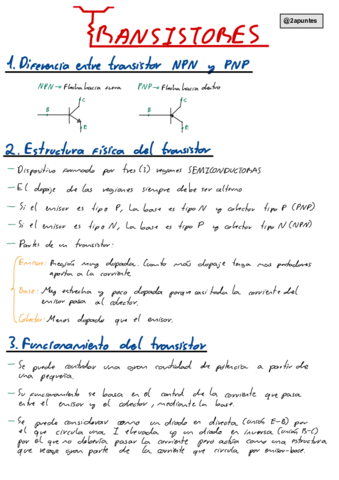 @2apuntes
TRANSISTORES
1. Diferencia entre transistor NPN y PNP
NPN → Flecha hacia fuera PNP → Flecha hacia dentro
C C
B B
E E
2. Estructura física del transistor
— Dispositivo formado por tres (3) regiones SEMICONDUCTORAS
— El dopaje de las regiones siempre debe ser alterno
— Si el emisor es tipo P, la base es tipo N y colector tipo P (PNP)
— Si el emisor es tipo N, la base es tipo P y colector tipo N (NPN)
— Partes de un transistor:
Emisor: Región muy dopada. Cuanto más dopaje tenga más portadores
aporta a la corriente.
Base: Muy estrecha y poco dopada porque casi toda la corriente del
emisor pasa al colector.
Colector: Menos dopado que el emisor.
3. Funcionamiento del transistor
— Se puede controlar una gran cantidad de potencia a partir de
una pequeña.
— Su funcionamiento se basa en el control de la corriente que pasa
entre el emisor y el colector, mediante la base.
— Se puede considerar como un diodo en directa (unión E-B) por
el que circula una I elevada y un diodo en inversa (unión B-C)
por el que no debería pasar la corriente pero actúa como una estructura
que recoge gran parte de la corriente que circula por emisor-base.